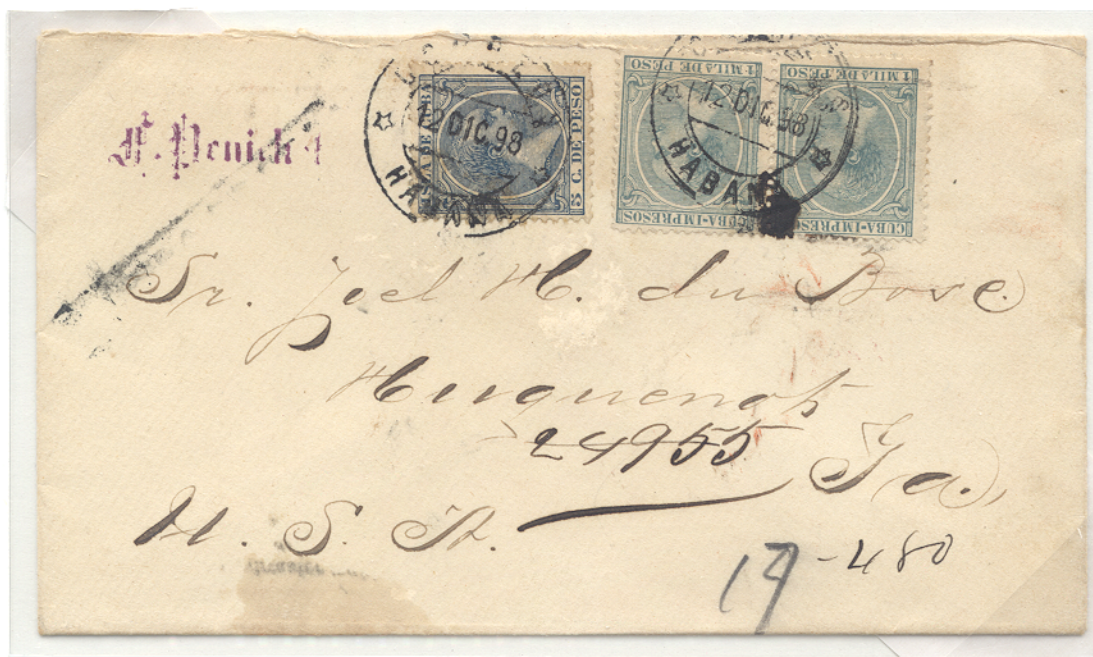 F. Penick
12 DIC. 98
HABANA
5 C. DE PESO
12 DIC. 98
HABANA
1 MILA DE PESO
1 MILA DE PESO
CUBA-IMPRESOS
CUBA-IMPRESOS
Sr. Joel H. du Bose
Huguenot
24955 Ga.
U. S. A.
19 - 480